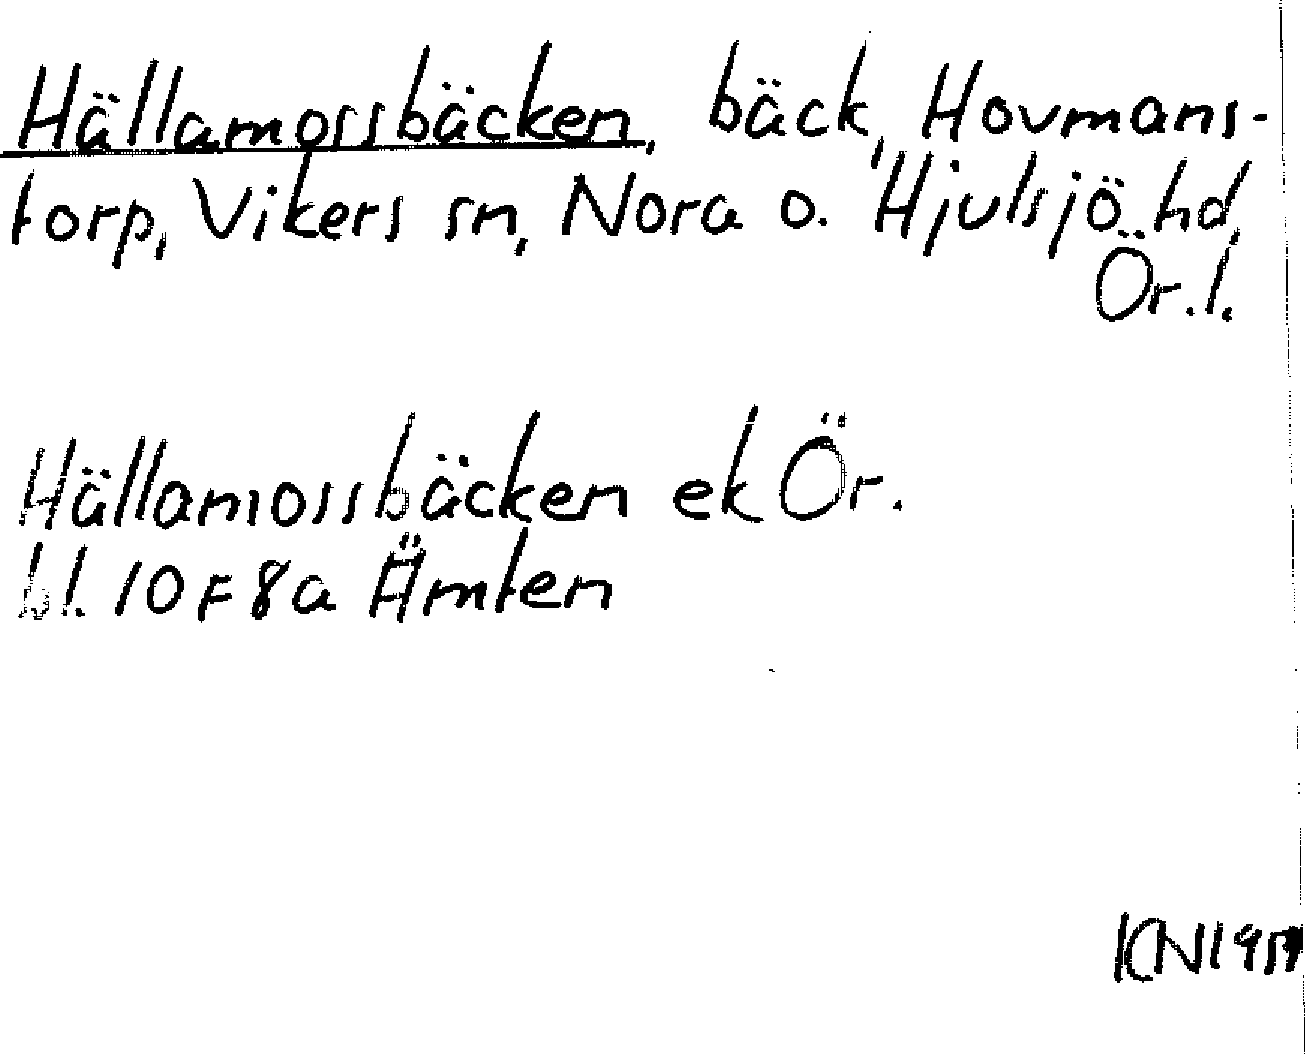 Hällamossbäcken, bäck, Hovmans-
torp, Vikers sn, Nora o. Hjulsjö hd,
Ör. l.
Hällamossbäcken ek Ör.
bl. 10 F 8a Ämten